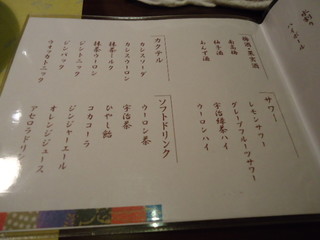 梅酒・果実酒
南高梅
柚子酒
あんず酒
サワー
レモンサワー
グレープフルーツサワー
宇治緑茶ハイ
ウーロンハイ
カクテル
カシスソーダ
カシスウーロン
抹茶ミルク
抹茶ウーロン
ジントニック
ジンバック
ウォッカトニック
ソフトドリンク
ウーロン茶
宇治茶
ひやし飴
コカコーラ
ジンジャーエール
オレンジジュース
アセロラドリンク